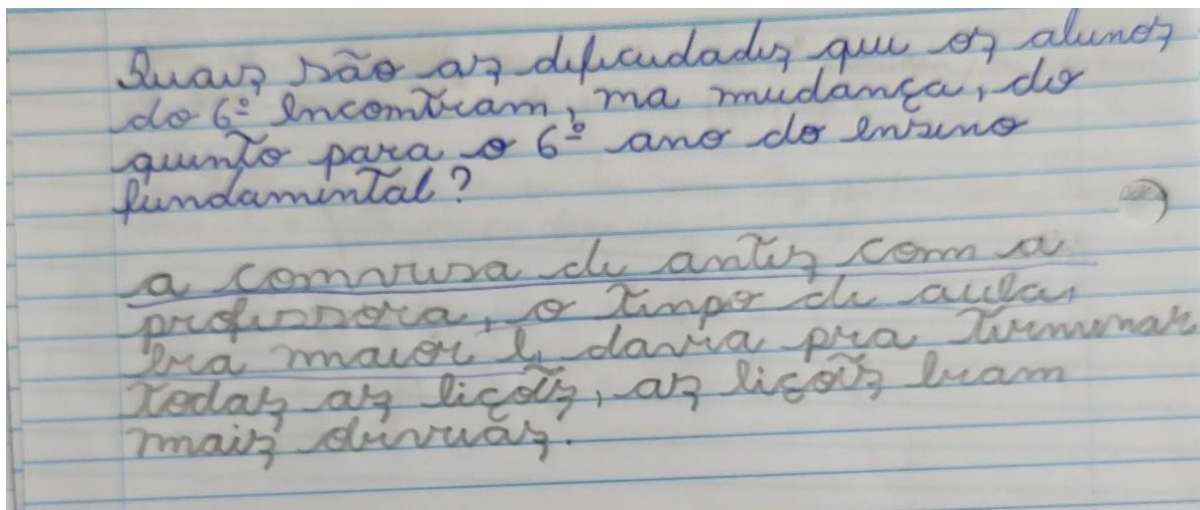 Quais são as dificudades que os alunos
do 6º encontram, na mudança, do
quinto para o 6º ano do ensino
fundamental?
a conversa de antes com a
professora, o tempo de aula,
era maior e, dava pra terminar
todas as lições, as lições eram
mais